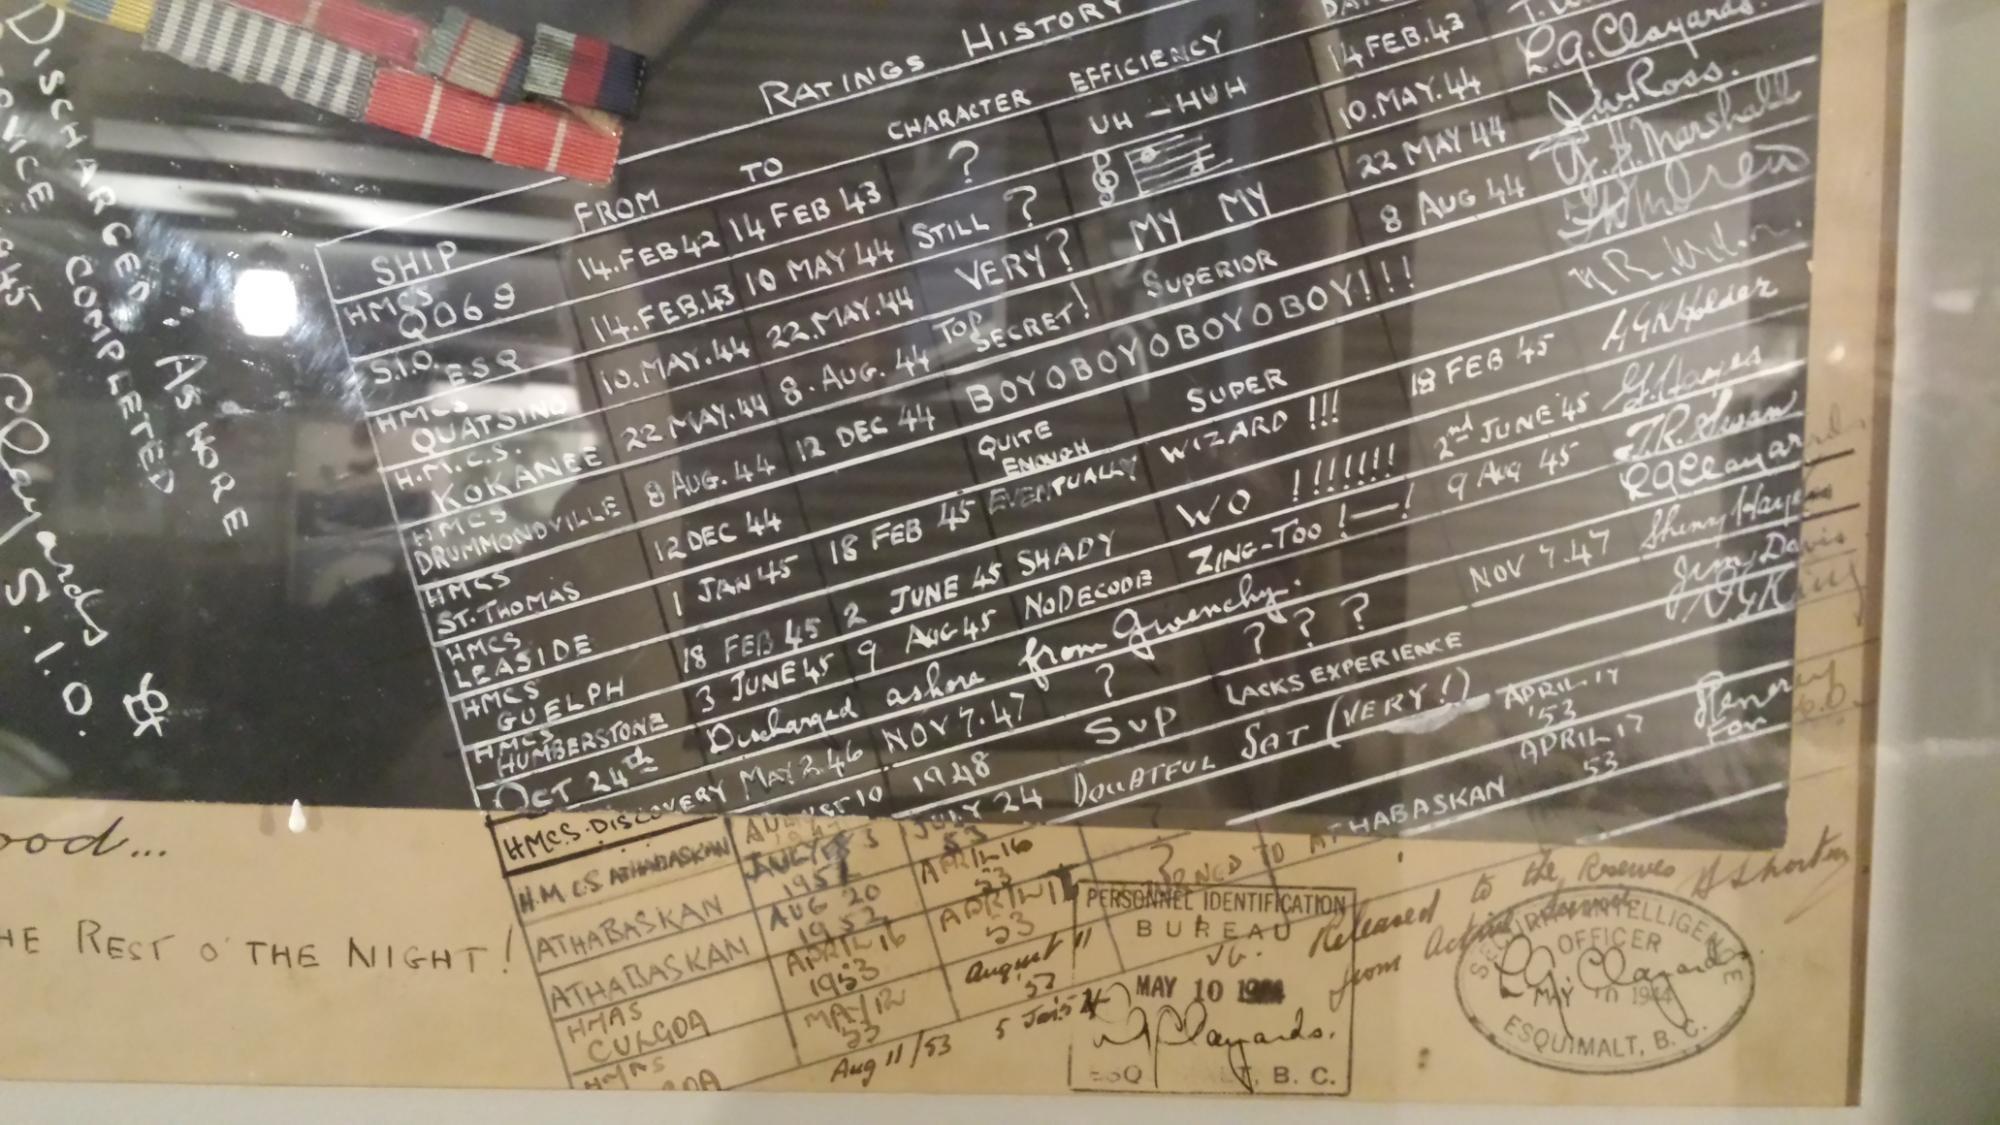 DISCHARGED : ASHORE
SERVICE COMPLETED
Clayards S.I.O.
RATINGS HISTORY
SHIP FROM TO CHARACTER EFFICIENCY
HMCS Q069 14.FEB 42 14 FEB 43 ? UH-HUH 14 FEB.43
S.I.O. ESQ 14.FEB.43 10 MAY 44 STILL ? 10.MAY.44 L.G.Clayards.
HMCS QUATSINO 10.MAY.44 22.MAY.44 VERY? MY MY 22 MAY 44 J.W.Ross.
H.M.C.S. KOKANEE 22 MAY.44 8.AUG.44 TOP SECRET! SUPERIOR 8 AUG 44 Marshall
HMCS DRUMMONDVILLE 8 AUG.44 12 DEC 44 BOYOBOYOBOYOBOYOBOY!!!
HMCS ST.THOMAS 12 DEC 44 QUITE ENOUGH SUPER
HMCS LEASIDE 1 JAN 45 18 FEB 45 EVENTUALLY WIZARD !!! 18 FEB 45
HMCS GUELPH 18 FEB 45 2 JUNE 45 SHADY WO !!!!!!! 2nd JUNE 45 Hayes
HMCS HUMBERSTONE 3 JUNE 45 9 AUG 45 NODECODE ZING-TOO !—! 9 AUG 45 T.R.Swan
OCT 24th Discharged ashore from Gwenchy. LGClayards
HMCS.DISCOVERY MAY 2.46 NOV 7.47 ? ? ? ? NOV 7.47
H.M.C.S ATHABASKAN 1948 SUP LACKS EXPERIENCE Jim Davis
ATHABASKAN JULY 24 53 DOUBTFUL SAT (VERY!) APRIL 17 '53
ATHABASKAN AUG 20 1952 APRIL 16 53 ATHABASKAN APRIL 17 53
HMAS CULGOA APRIL 16 1953 APRIL 17 53
HMAS MAY 12 53 August 11 53
Aug 11/53
Released to the Reserves
from
THE REST O' THE NIGHT!
PERSONNEL IDENTIFICATION
BUREAU
MAY 10 1944
Clayards.
ESQ LT, B. C.
SECURITY INTELLIGENCE
OFFICER
L.G. Clayards
MAY 10 1944
ESQUIMALT, B. C.